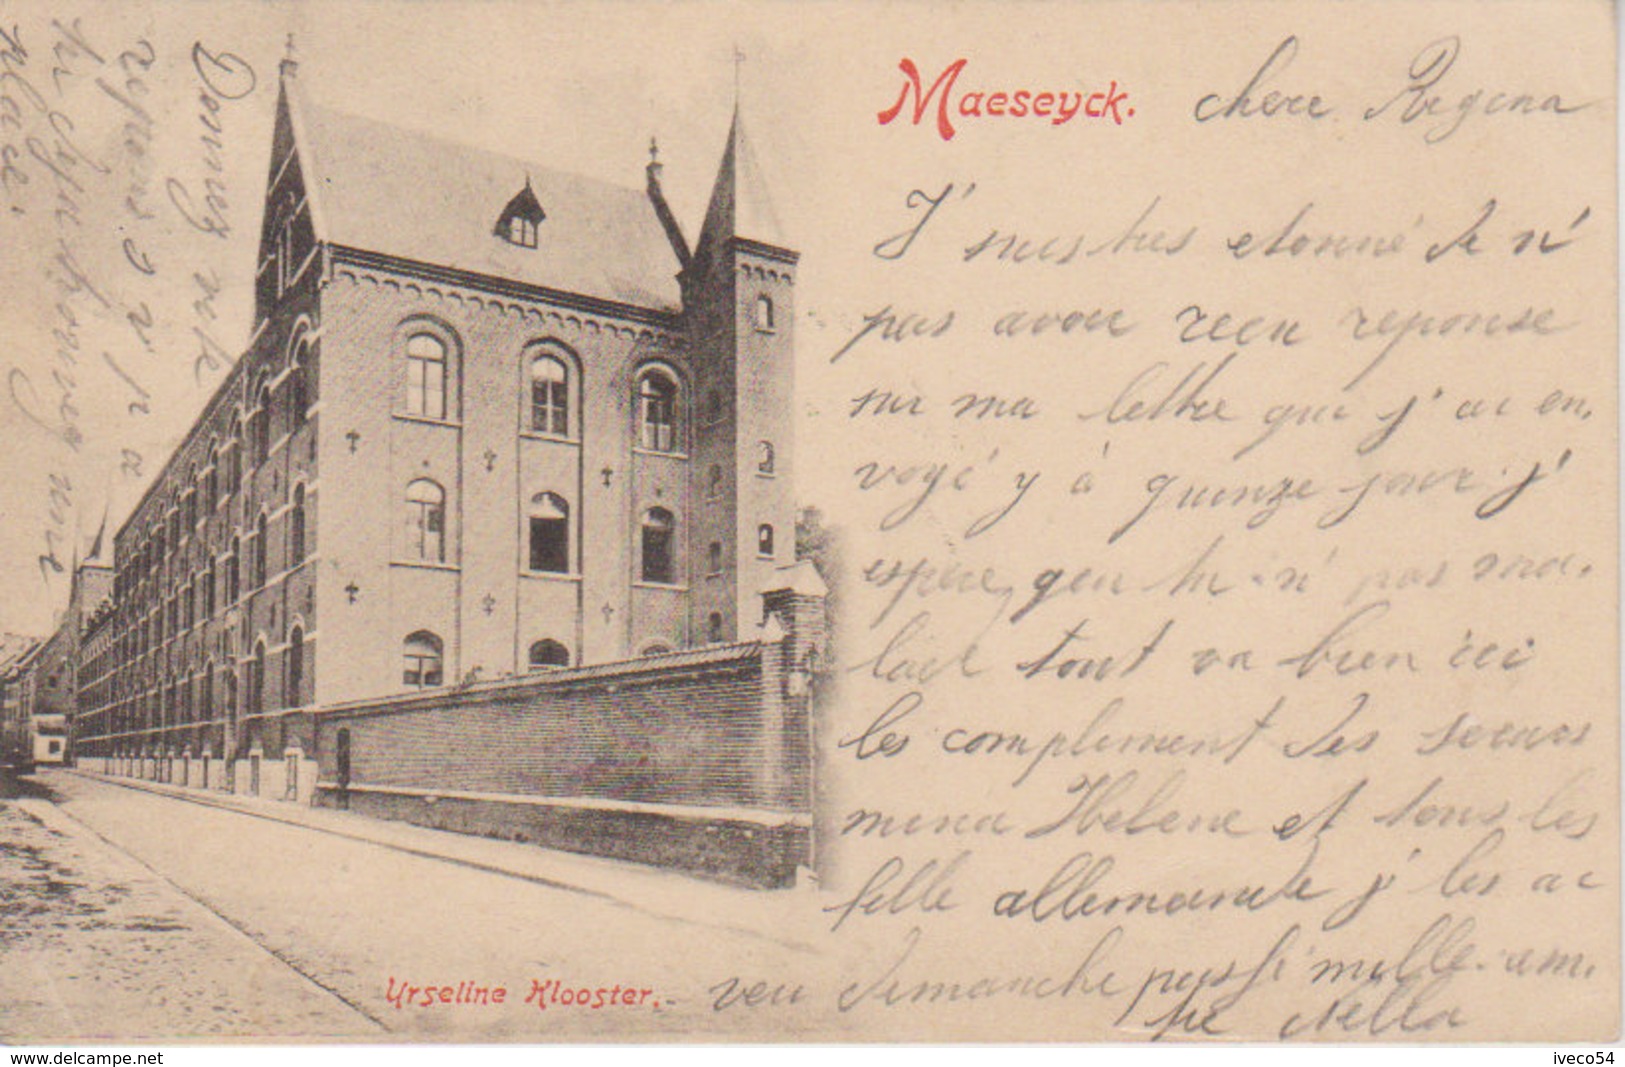 Maeseyck.
chere Regina
J' suis tres etonné de n'
pas avoir recu reponse
sur ma lettre que j' ai en,
voyé y á quinze jour. j'
espere, que tu n' pas ma,
lade tout va bien ici
les complement des soeurs
mina Helene et tous les
fille allemande j' les ai
veu dimanche passé mille. ami,
tié Nella
Urseline Klooster.
Donnez
reponse s' v' p
place.
www.delcampe.net
iveco54